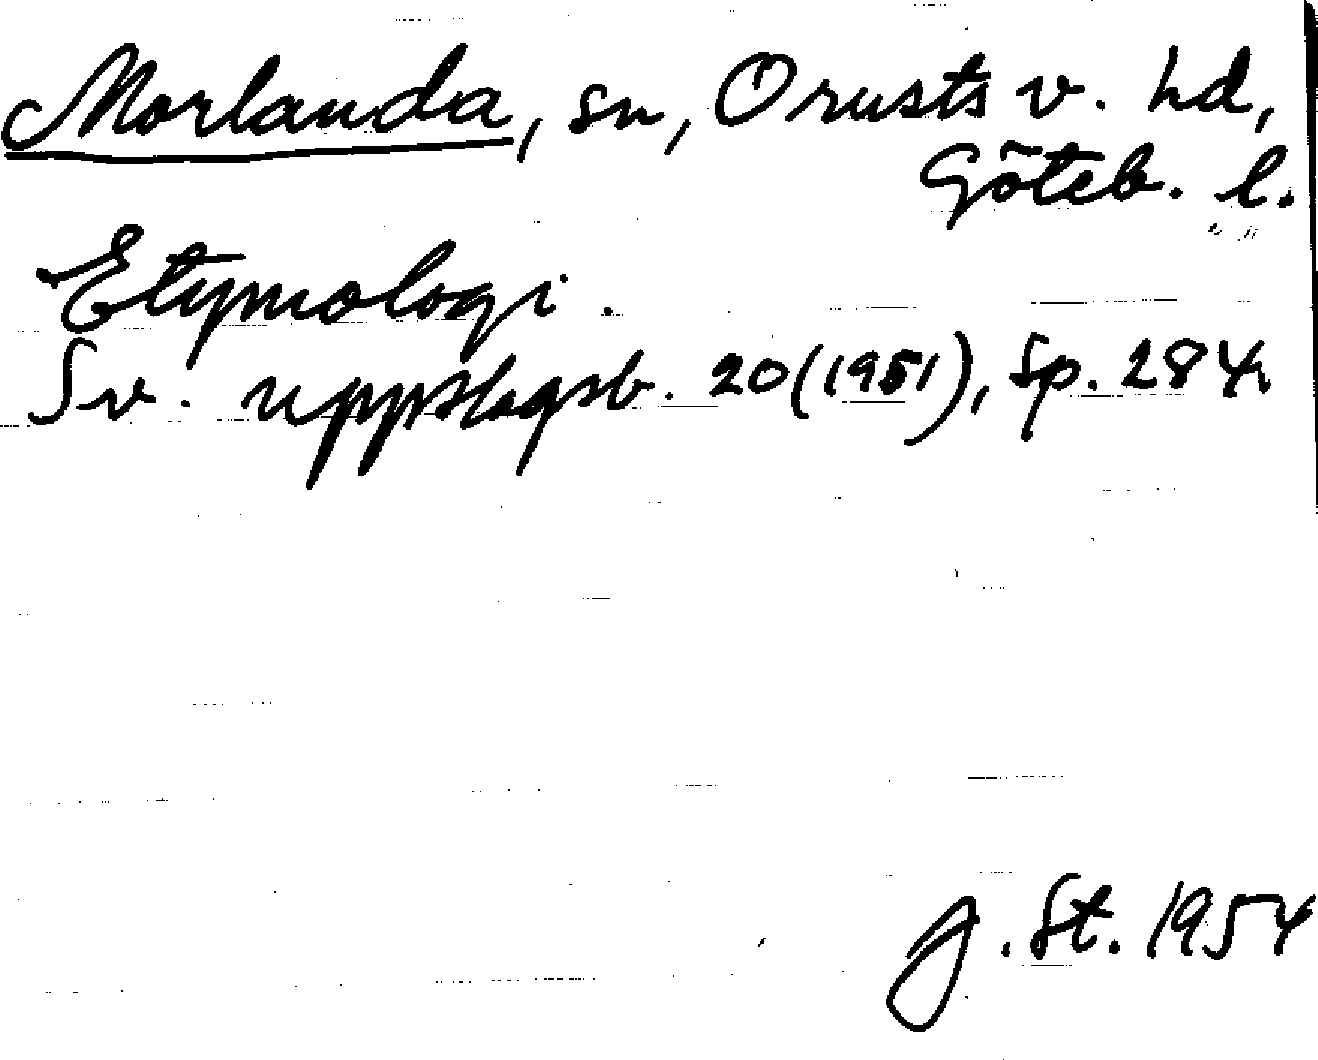 Morlanda, sn, Orusts v. hd,
Göteb. l.
Etymologi.
Sv. uppslagsb. 20 (1951), sp. 284.
J. St. 1954